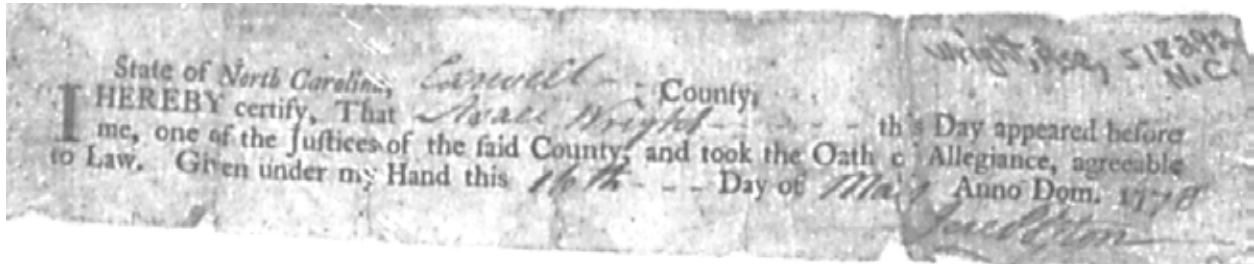 Wright,
N.C.
State of North Carolina, Caswell - - County,
I HEREBY certify, That Wright - - - - - - th's Day appeared before
me, one of the Juſtices of the ſaid County, and took the Oath o' Allegiance, agreeable
to Law. Given under my Hand this 16th - - - Day of May Anno Dom. 1778